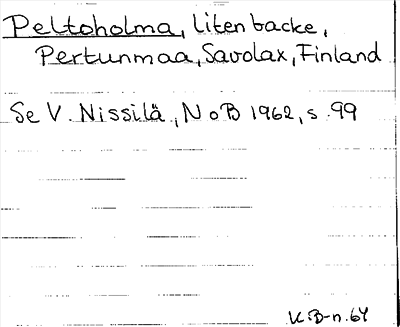 Peltoholma, liten backe,
Pertunmaa, Savolax, Finland
Se V. Nissilä, NoB 1962, s. 99
K.B-n.64